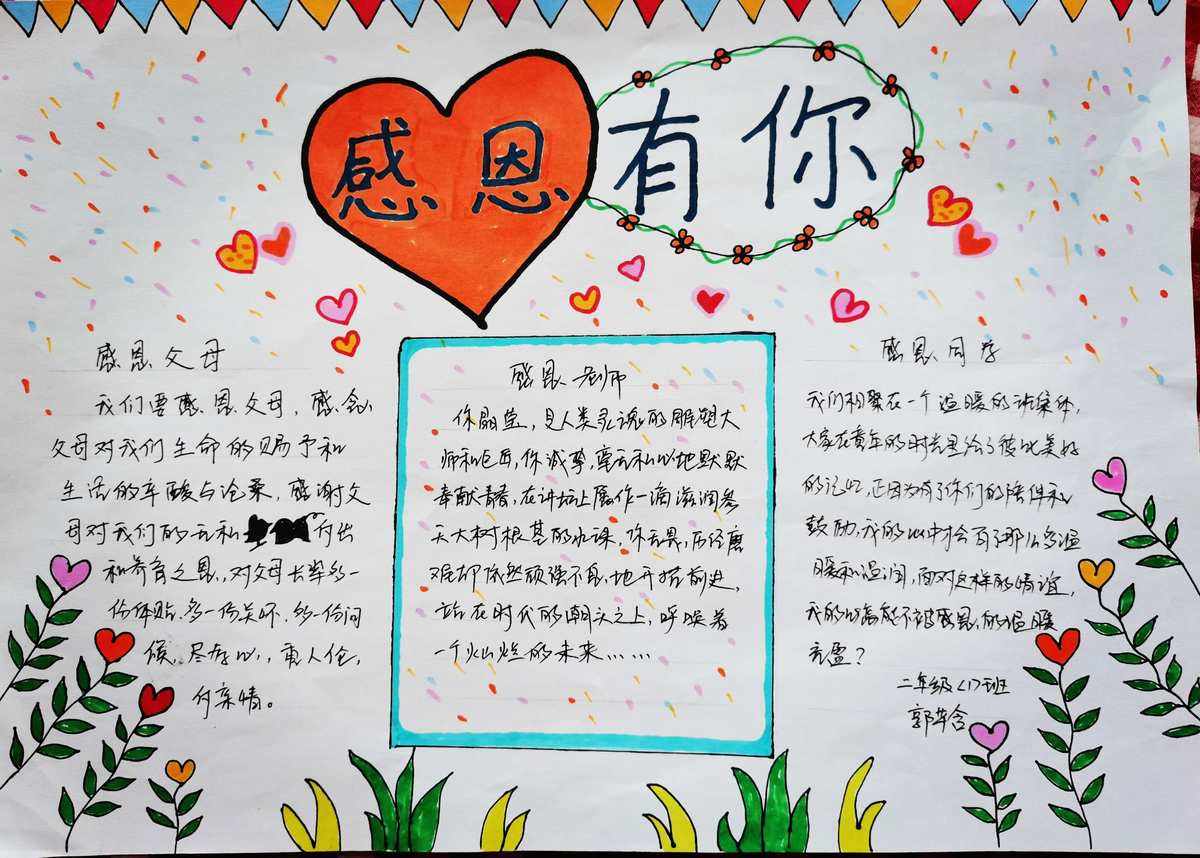 感恩有你
感恩父母
我们要感恩父母，感念
父母对我们生命的赐予和
生活的辛酸与沧桑，感谢父
母对我们的无私付出
和养育之恩，对父母长辈多一
份体贴，多一份关怀，多一份问
候，尽孝心，重人伦，
付亲情。
感恩老师
你晶莹，是人类灵魂的雕塑大
师和巨匠，你诚挚，毫无私心地默默
奉献青春，在讲坛上愿作一滴滋润参
天大树根基的水珠，你无畏，历经磨
难却依然顽强不息地开拓前进，
站在时代的潮头之上，呼唤着
一个灿烂的未来……
感恩同学
我们相聚在一个温暖的班集体，
大家在童年的时光里给了彼此美好
的记忆，正因为有了你们的陪伴和
鼓励，我的心中才会有了那么多温
暖和湿润，面对这样的情谊，
我的心怎能不被感恩的温暖
充盈？
二年级<1>班